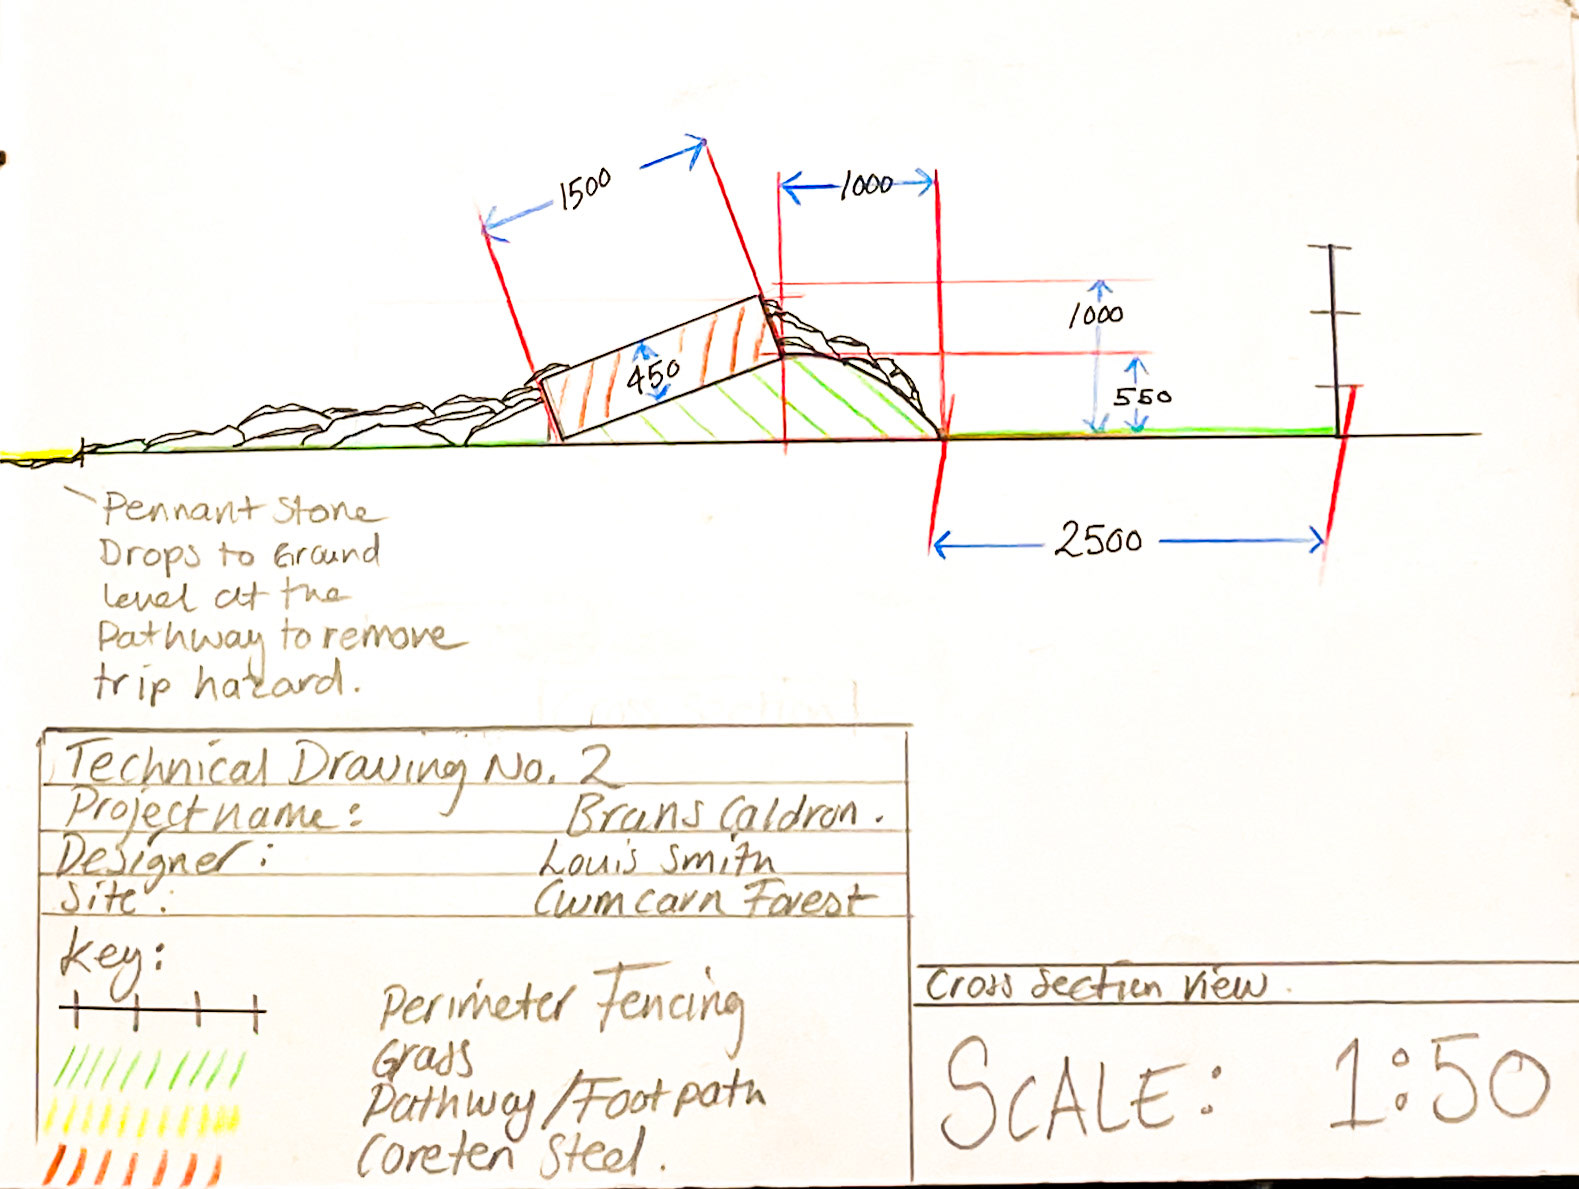 1500
1000
1000
450
550
2500
Pennant Stone
Drops to Ground
level at the
Pathway to remove
trip hazard.
Technical Drawing No. 2
Project name: Brans Caldron.
Designer: Louis Smith
Site: Cwmcarn Forest
Key:
Perimeter Fencing
Grass
Pathway/Footpath
Coreten Steel.
Cross Section View.
SCALE: 1:50